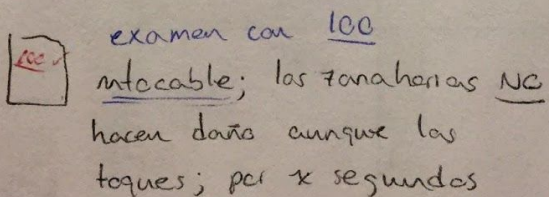 100
examen con 100
intocable; las zanahorias NO
hacen daño aunque las
toques; por x segundos